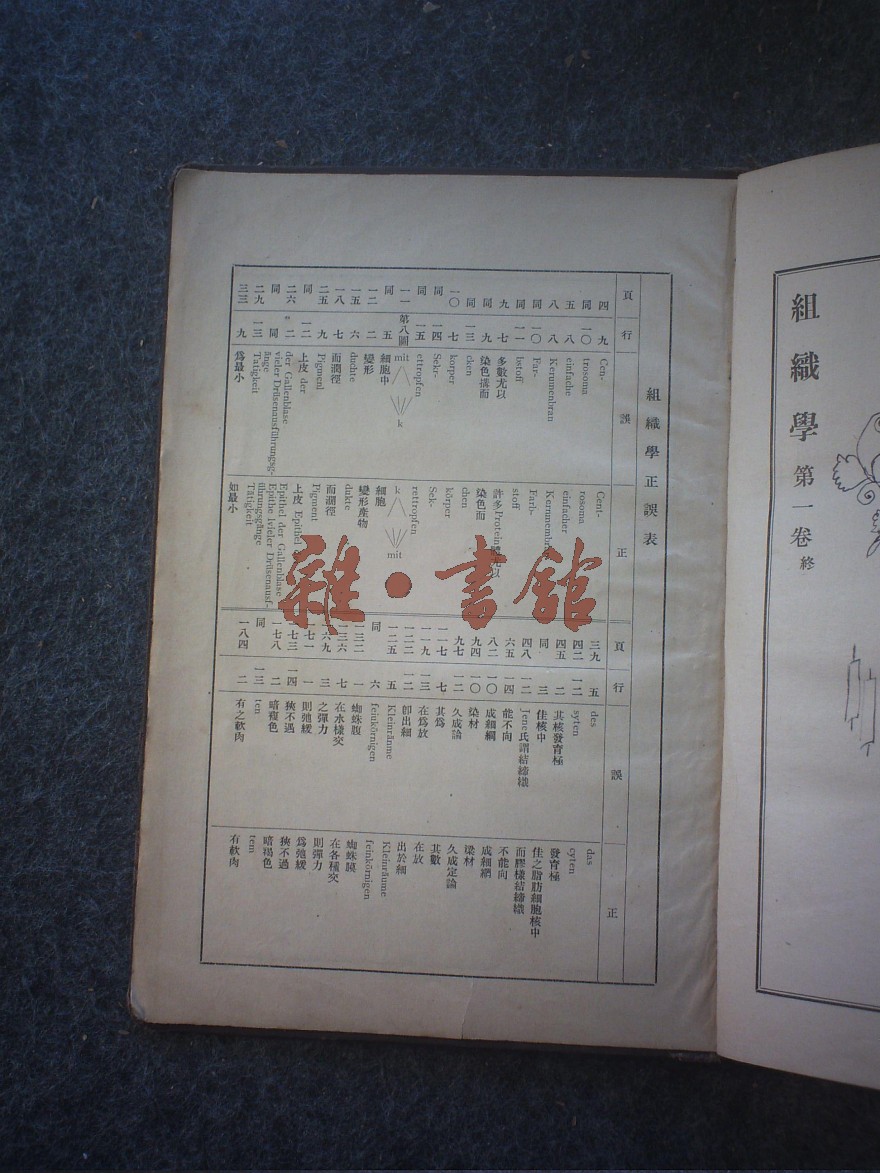 組織學第一卷 終
組織學正誤表
頁 行 誤 正
四 九 Cen- Cent-
同 一〇 trosoma rosoma
五 八 einfache einfacher
八 八 Kerumenbran
同 一〇 Far- Farb-
同 一一 bstoff stoff
九 七 多數尤以 許多Protein體尤以
同 九 染色搆而 染色而
同 一三 cken chen
一〇 七 korper körper
同 四 Sekr- Sek-
同 一五 ettropfen rettropfen
一一 第八圖 mit k k mit
同 五 細胞中 細胞
一二 二 變形 變形產物
一五 六 duchte dukte
一八 七 而濶徑 而濶徑
二五 九 Pigmenl Pigment
同 一二 上皮 der 上皮 Epithel
二六 二 der Gallenblase Epithel der Gallenblase
同 同 vieler Drüsenausführungsg-änge Epithe lvieler Drüsenausf-ührungsgänge
二九 一三 Tatigkeit Tätigkeit
三三 九 爲最小 如最小
頁 行 誤 正
三九 五 des das
四二 一二 syten cyten
四五 二 其核發育極 發育極
同 三 佳核中 佳之脂肪細胞核中
四八 一二 Jene氏謂結締織 而膠樣結締織
六五 一四 能不向 不能向
八二 一〇 成細綱 成細網
九四 一〇 染材 梁材
九七 一二 久成論 久成定論
一一七 七 其爲 其數
一一九 一三 在爲放 在放
一二二 一二 卽出細 出於細
一二五 五 Kleinränme Kleinräume
同 六 feiukörnigen feinkörnigen
一三二 一 蜘蛛腹 蜘蛛膜
一三六 七 在水樣交 在各種交
一六九 三 之彈力 則彈力
一七一 一 則弛緩 爲弛緩
一七三 一四 狹不遇 狹不過
一七八 二 暗瘦色 暗褐色
同 一三 ten tem
一八四 二 有之軟肉 有軟肉
雜·書館